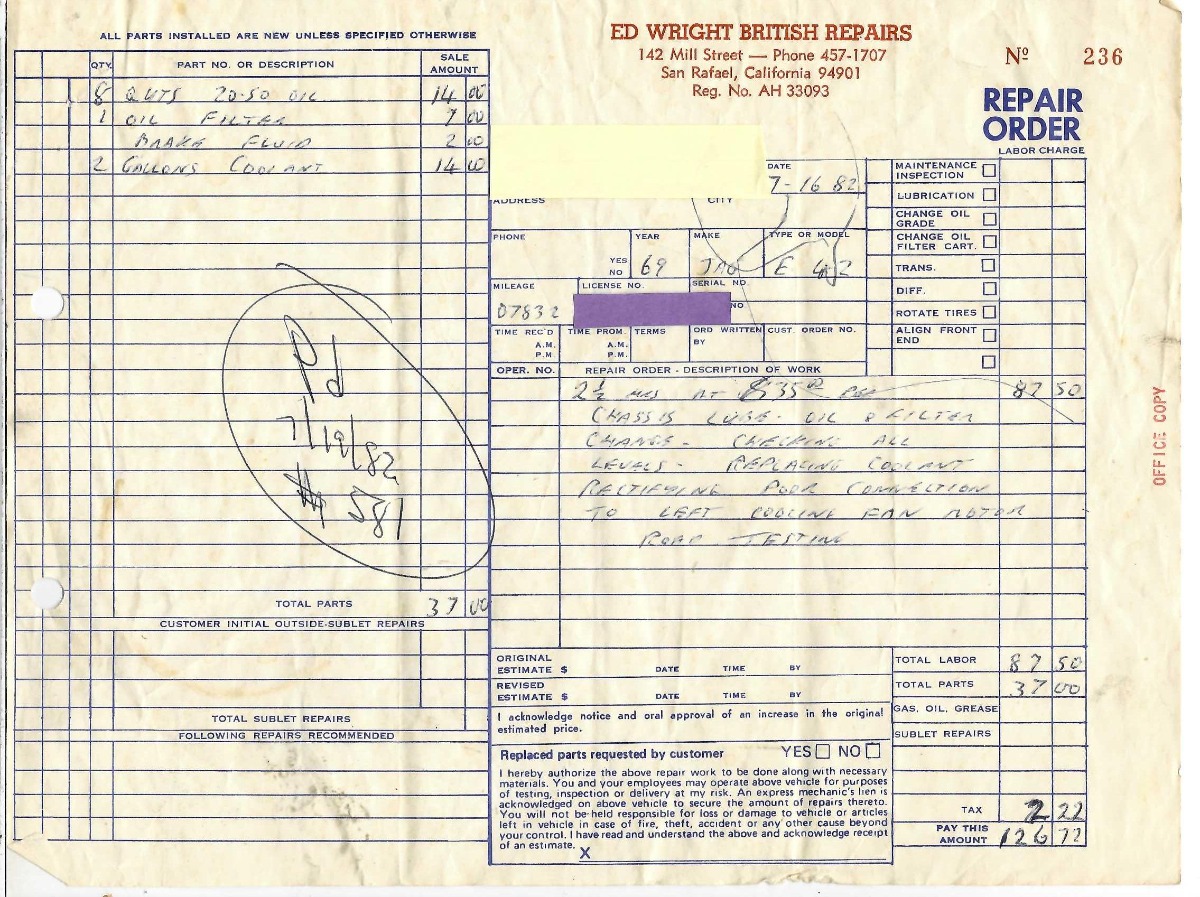 ALL PARTS INSTALLED ARE NEW UNLESS SPECIFIED OTHERWISE
QTY. PART NO. OR DESCRIPTION SALE AMOUNT
8 QUTS 20-50 OIL 14 00
1 OIL FILTER 7 00
BRAKE FLUID 2 00
2 GALLONS COOLANT 14 00
Pd
7/19/82
# 581
TOTAL PARTS 37 00
CUSTOMER INITIAL OUTSIDE-SUBLET REPAIRS
TOTAL SUBLET REPAIRS
FOLLOWING REPAIRS RECOMMENDED
ED WRIGHT BRITISH REPAIRS
142 Mill Street — Phone 457-1707
San Rafael, California 94901
Reg. No. AH 33093
Nº 236
REPAIR
ORDER
LABOR CHARGE
DATE
7-16 82
ADDRESS CITY
PHONE YEAR MAKE TYPE OR MODEL
YES
NO 69 JAG E 4.2
MILEAGE LICENSE NO. SERIAL NO.
07832 NO
TIME REC'D TIME PROM. TERMS ORD WRITTEN CUST. ORDER NO.
A.M. A.M. BY
P.M. P.M.
MAINTENANCE
INSPECTION
LUBRICATION
CHANGE OIL
GRADE
CHANGE OIL
FILTER CART.
TRANS.
DIFF.
ROTATE TIRES
ALIGN FRONT
END
OPER. NO. REPAIR ORDER - DESCRIPTION OF WORK
2½ HRS AT $35.00 87 50
CHASSIS LUBE - OIL & FILTER
CHANGE - CHECKING ALL
LEVELS - REPLACING COOLANT
RECTIFYING POOR CONNECTION
TO LEFT COOLING FAN MOTOR
ROAD TESTING
OFFICE COPY
ORIGINAL
ESTIMATE $ DATE TIME BY
REVISED
ESTIMATE $ DATE TIME BY
I acknowledge notice and oral approval of an increase in the original
estimated price.
Replaced parts requested by customer YES NO
I hereby authorize the above repair work to be done along with necessary
materials. You and your employees may operate above vehicle for purposes
of testing, inspection or delivery at my risk. An express mechanic's lien is
acknowledged on above vehicle to secure the amount of repairs thereto.
You will not be held responsible for loss or damage to vehicle or articles
left in vehicle in case of fire, theft, accident or any other cause beyond
your control. I have read and understand the above and acknowledge receipt
of an estimate.
X
TOTAL LABOR 87 50
TOTAL PARTS 37 00
GAS, OIL, GREASE
SUBLET REPAIRS
TAX 2 22
PAY THIS
AMOUNT 126 72